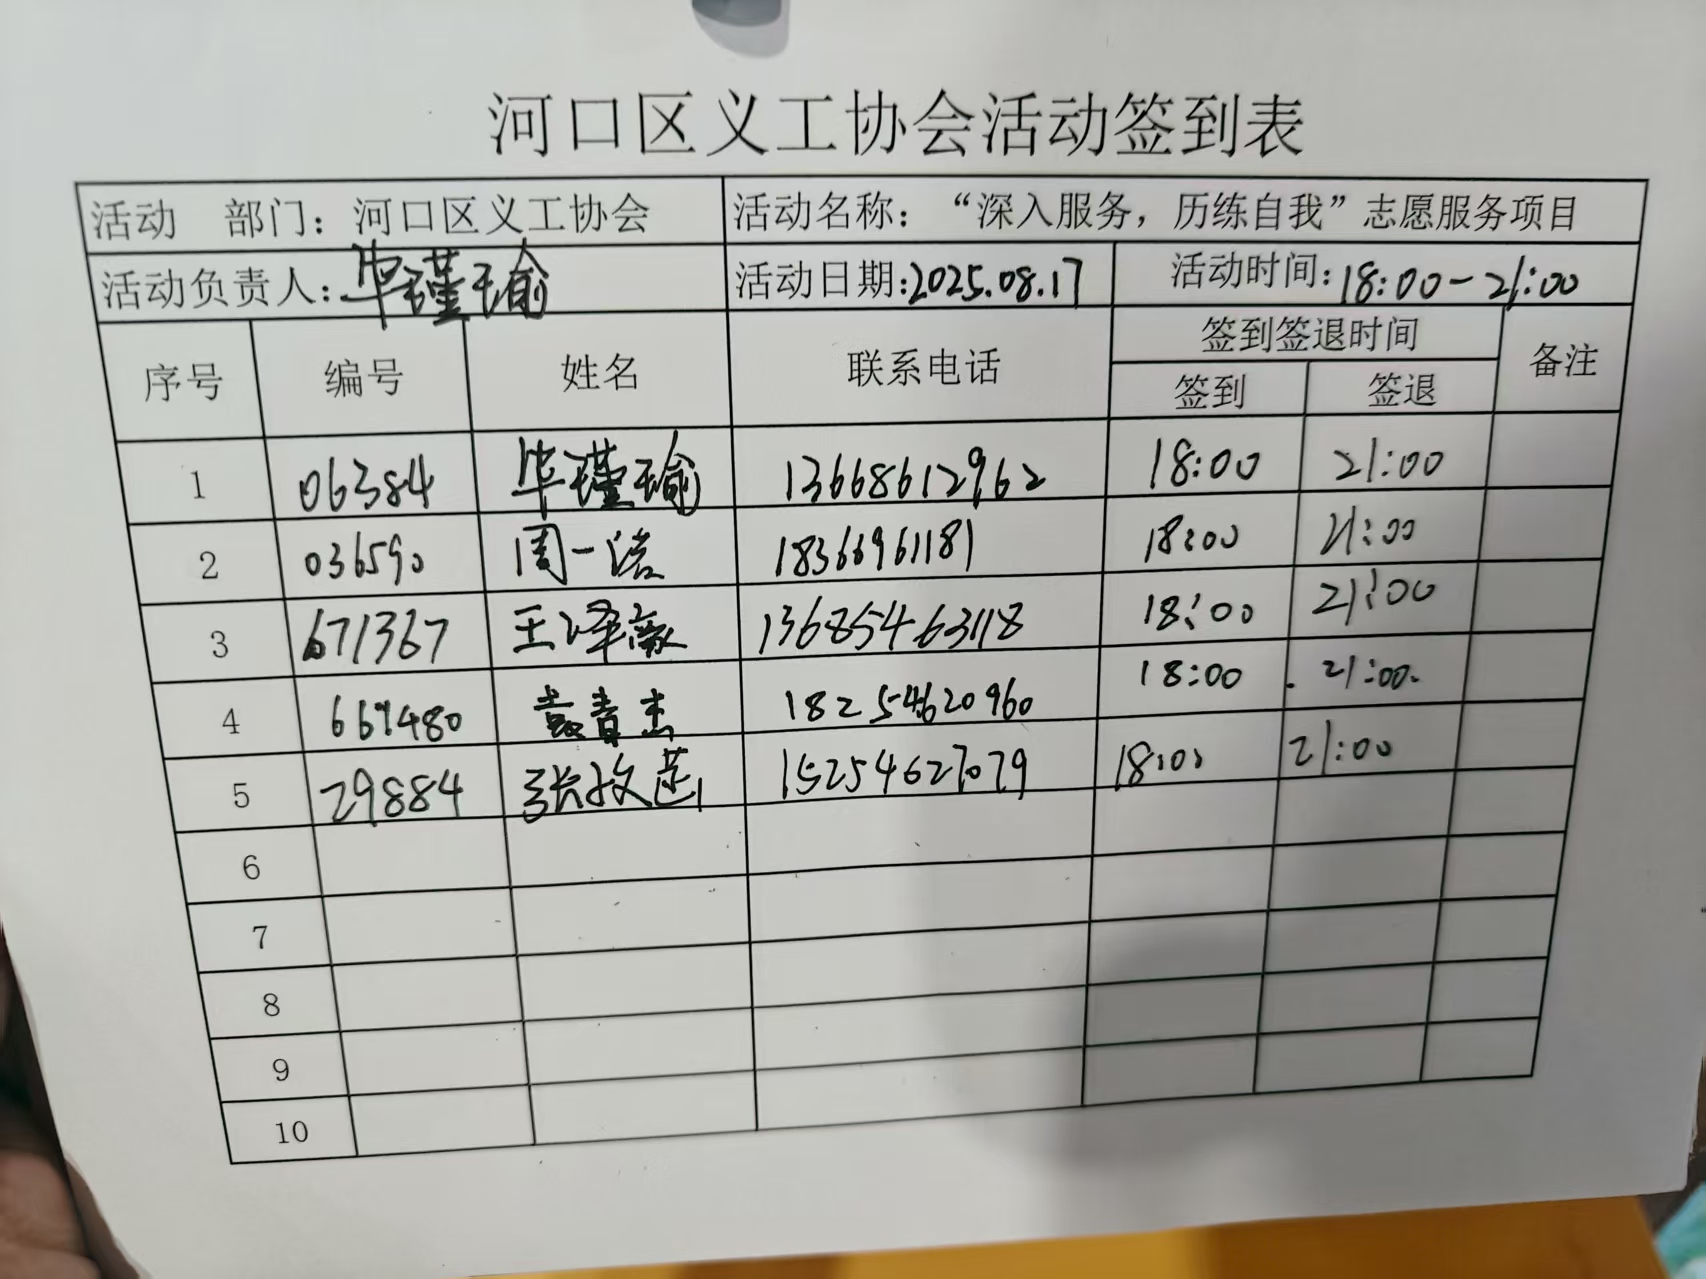 河口区义工协会活动签到表
活动 部门：河口区义工协会 活动名称：“深入服务，历练自我”志愿服务项目
活动负责人：毕瑾瑜 活动日期：2025.08.17 活动时间：18:00-21:00
序号 编号 姓名 联系电话 签到签退时间 备注
签到 签退
1 06384 毕瑾瑜 13668612962 18:00 21:00
2 036590 周一诺 18366961181 18:00 21:00
3 671367 王泽 13685463118 18:00 21:00
4 669480 袁青杰 18254620960 18:00 21:00
5 29884 张 15254627079 18:00 21:00
6
7
8
9
10